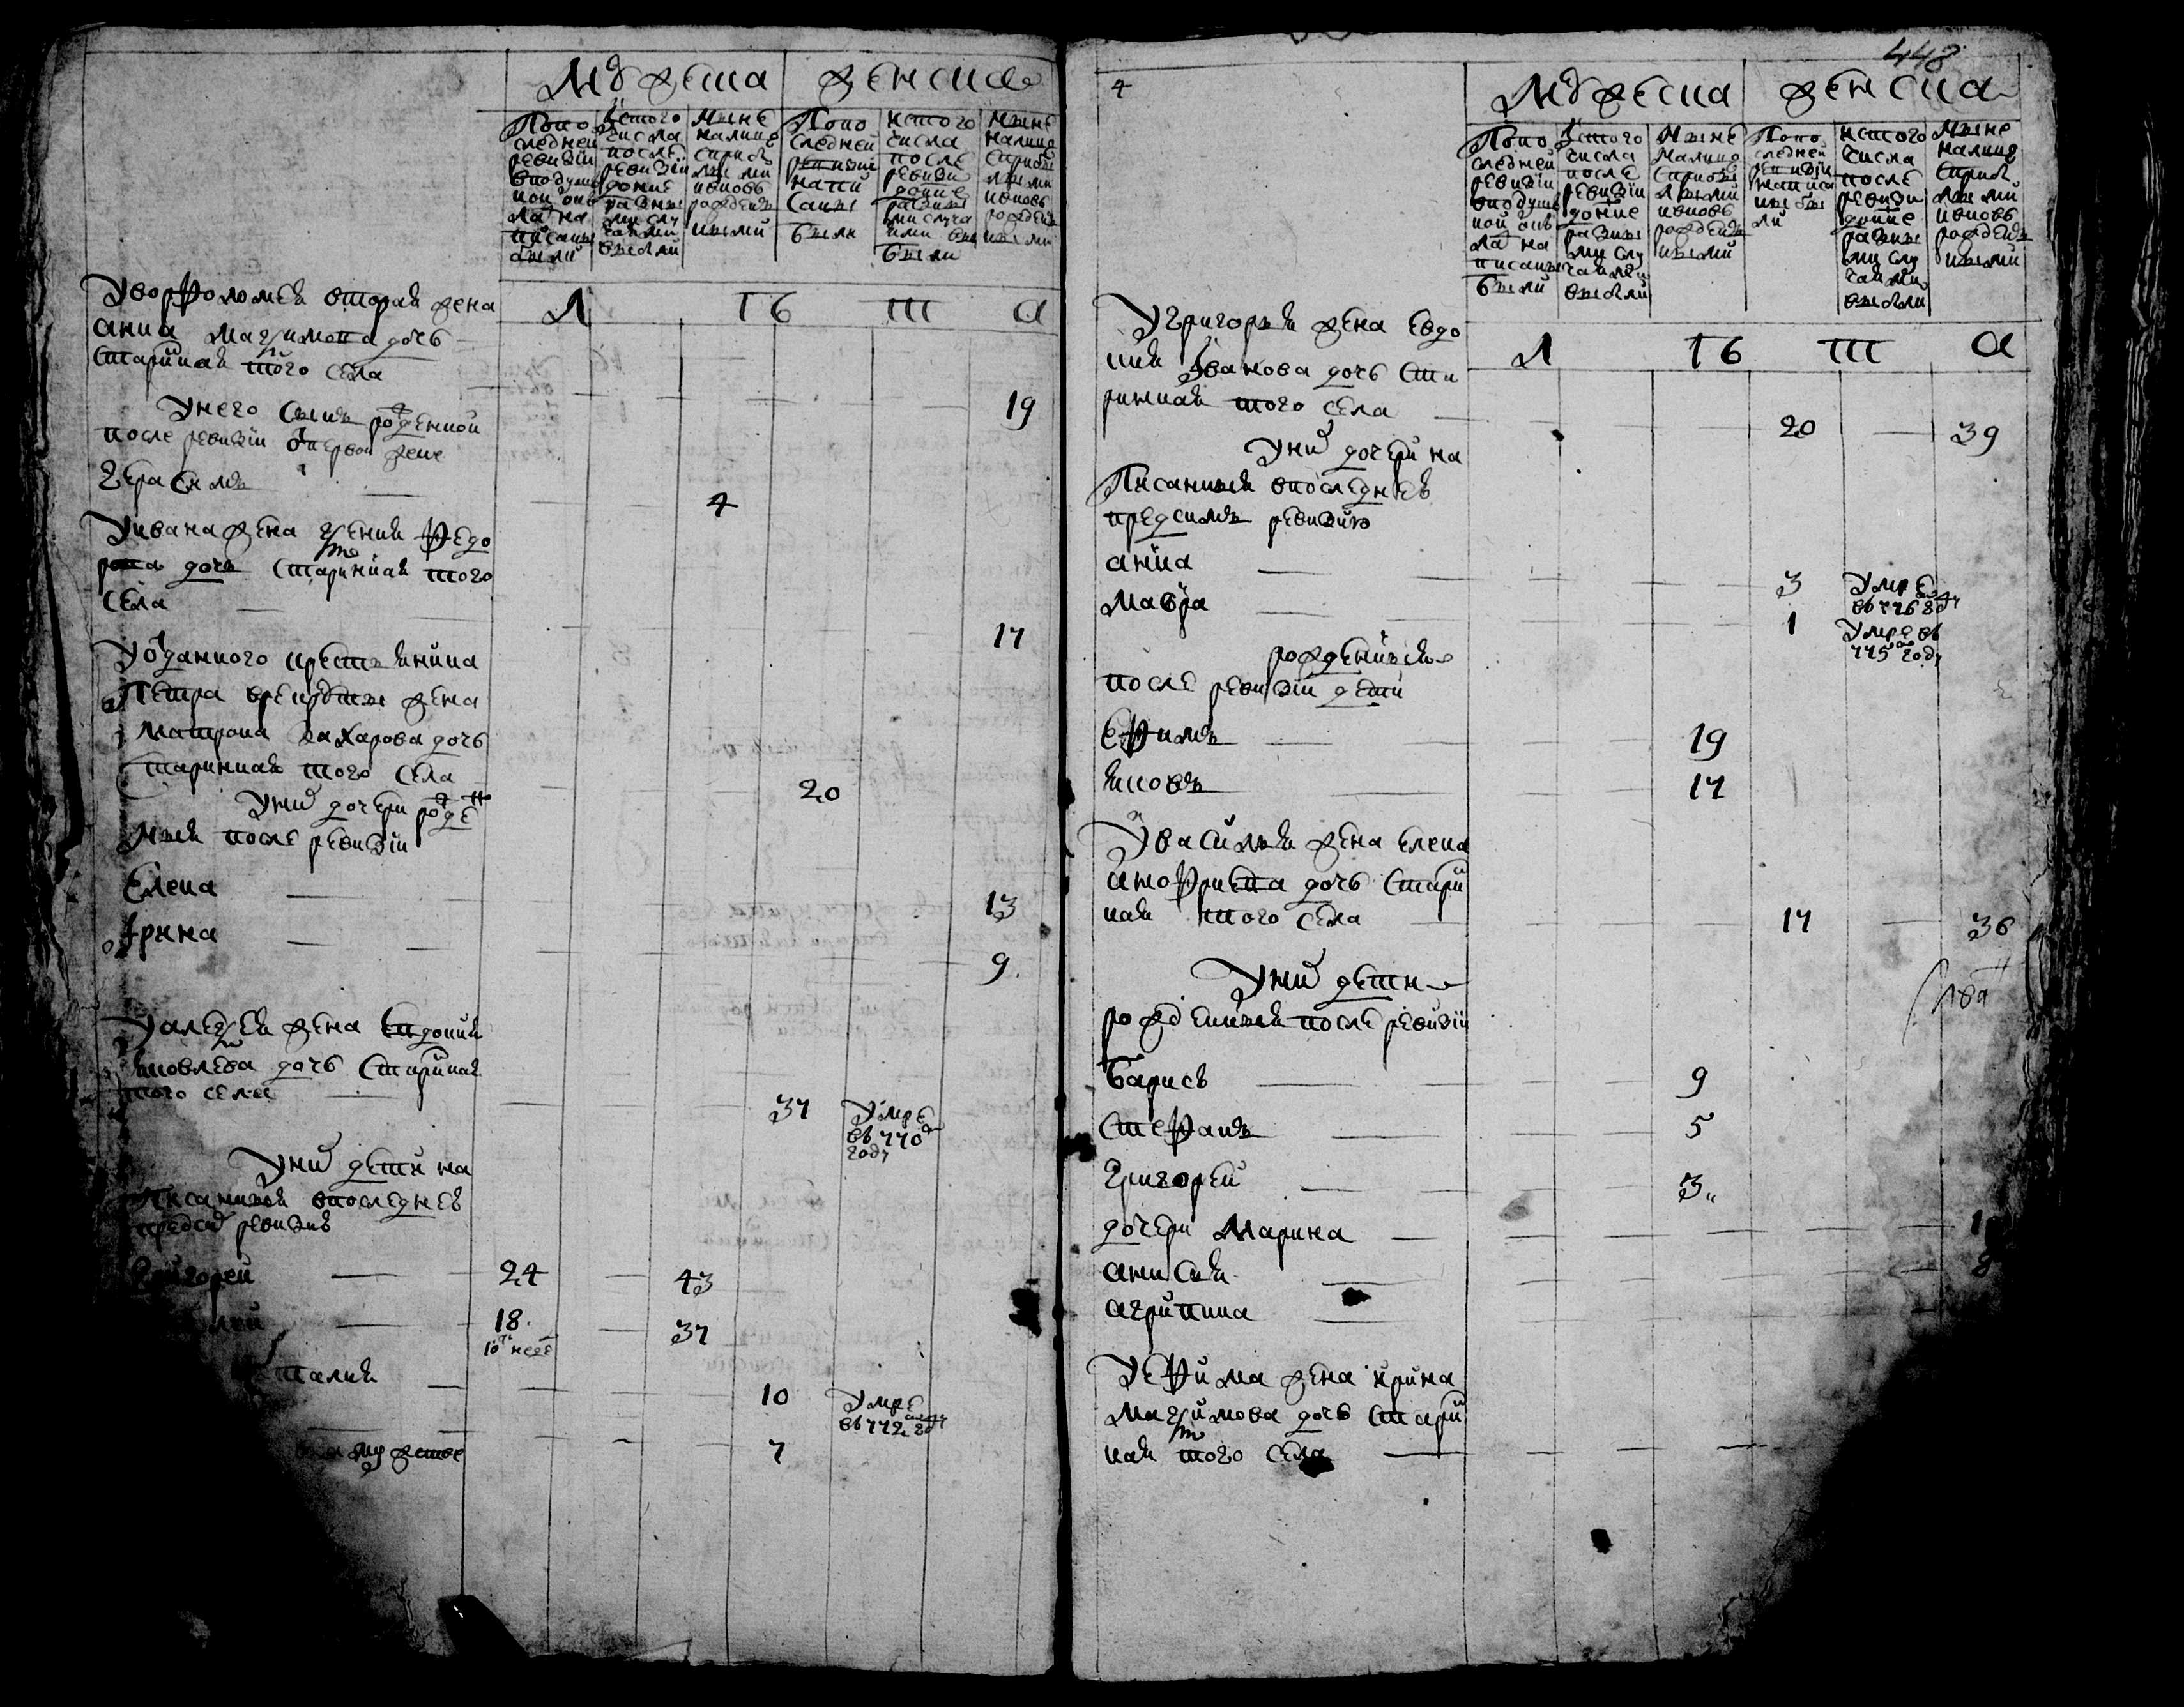 мужеска женска
По по
следней
ревизии
в подуш
ной окъ
ла на
писаны
были
ис того
числа
после
ревизии
до ние
разны
ми слу
чаи ми
выбыли
Ныне
налицо
с прибы
лы ми
и вновь
рожден
ными
По по
следней
ревизии
напи
саны
были
ис того
числа
после
ревизи
до ние
разны
ми случа
ями вы
были
Ныне
налицо
с прибы
лы ми
и вновь
рожден
ными
Л ГБ Ш А
У ворфоломея вторая жена
анна Максимова дочь
старинная того села
19
У него сынъ рожденной
после ревизии от первой жене
герасимъ
4
У ивана жена ксения федо
рова дочь старинная того
села
17
У отданного крестьянина
Петра в рекруты жена
Матрона захарова дочь
старинная того села
20
У них дочери рожде
ныя после ревизии
Елена
13
Ирина
9
У алексея жена Евдокия
яковлева дочь Старинная
того села
37 Умре
въ 770м
году
У них дети на
писанныя в последнею
пред сим ревизию
Григорей 24 43
18 37
талия
10 Умре
въ 772 году
7
448
4
мужеска женска
По по
следней
ревизии
в подуш
ной окъ
ла на
писаны
были
ис того
числа
после
ревизии
до ние
разны
ми слу
чаи ми
выбыли
Ныне
налицо
с прибы
лыми
и вновь
рожден
ными
По по
следней
ревизии
написа
ны бы
ли
ис того
числа
после
ревизи
до ние
разны
ми слу
чаи ми
выбыли
Ныне
налицо
с прибы
лы ми
и вновь
рожден
ными
Л ГБ Ш А
У григорья жена Евдо
кия Иванова дочь Ста
ринная того села
20 39
У них дочери на
Писанныя в последнею
пред симъ ревизию
анна
3 Умре
въ 776 году
Мавра
1 Умре въ
775м году
рожденныя
после ревизии дети
Ефимъ 19
яковъ 17
У василья жена елена
анофриева дочь Стари
ная того села
17 36
У них дети
рожденныя после ревизии
Барисъ 9
Стефанъ 5
Григорей 3
дочери Марина
анисия
агрипина
У ефима жена ирина
Максимова дочь стари
ная того села